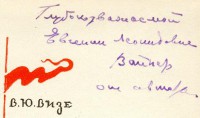 Глубокоуважаемой
Евгении Леонидовне
Вагнер
от автора.
В.Ю.ВИЗЕ